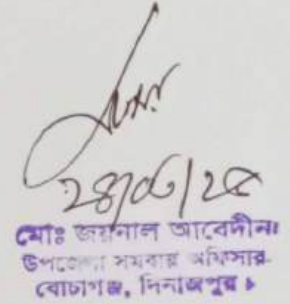 ২৪/০৮/২৫
মোঃ জয়নাল আবেদীন।
উপজেলা সমবায় অফিসার
বোচাগঞ্জ, দিনাজপুর ৷